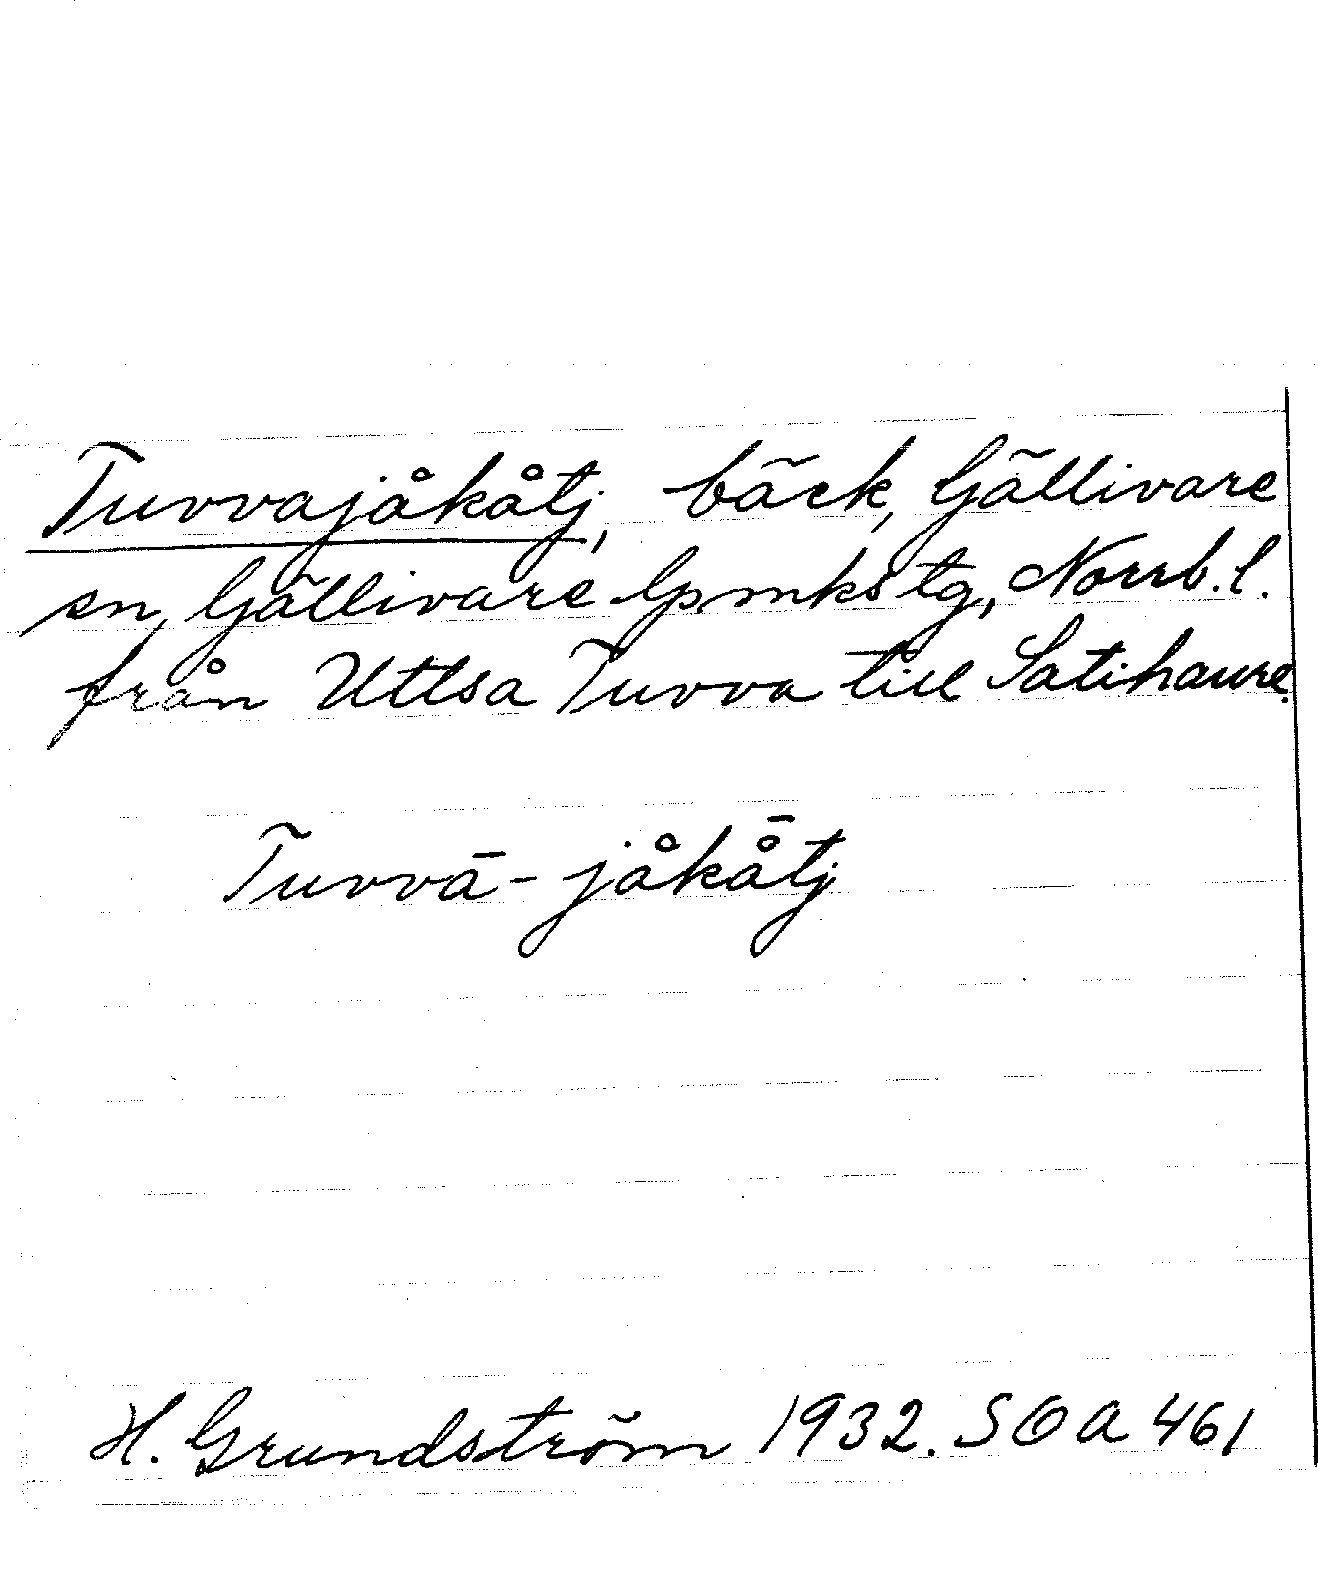 Tuvvajåkåtj, bäck, Gällivare
sn, Gällivare lpmkstg, Norrb. l.
från Uttsa Tuvva till Satihaure.
Tuvvā-jåkå̄tj
H. Grundström 1932. SOA 461